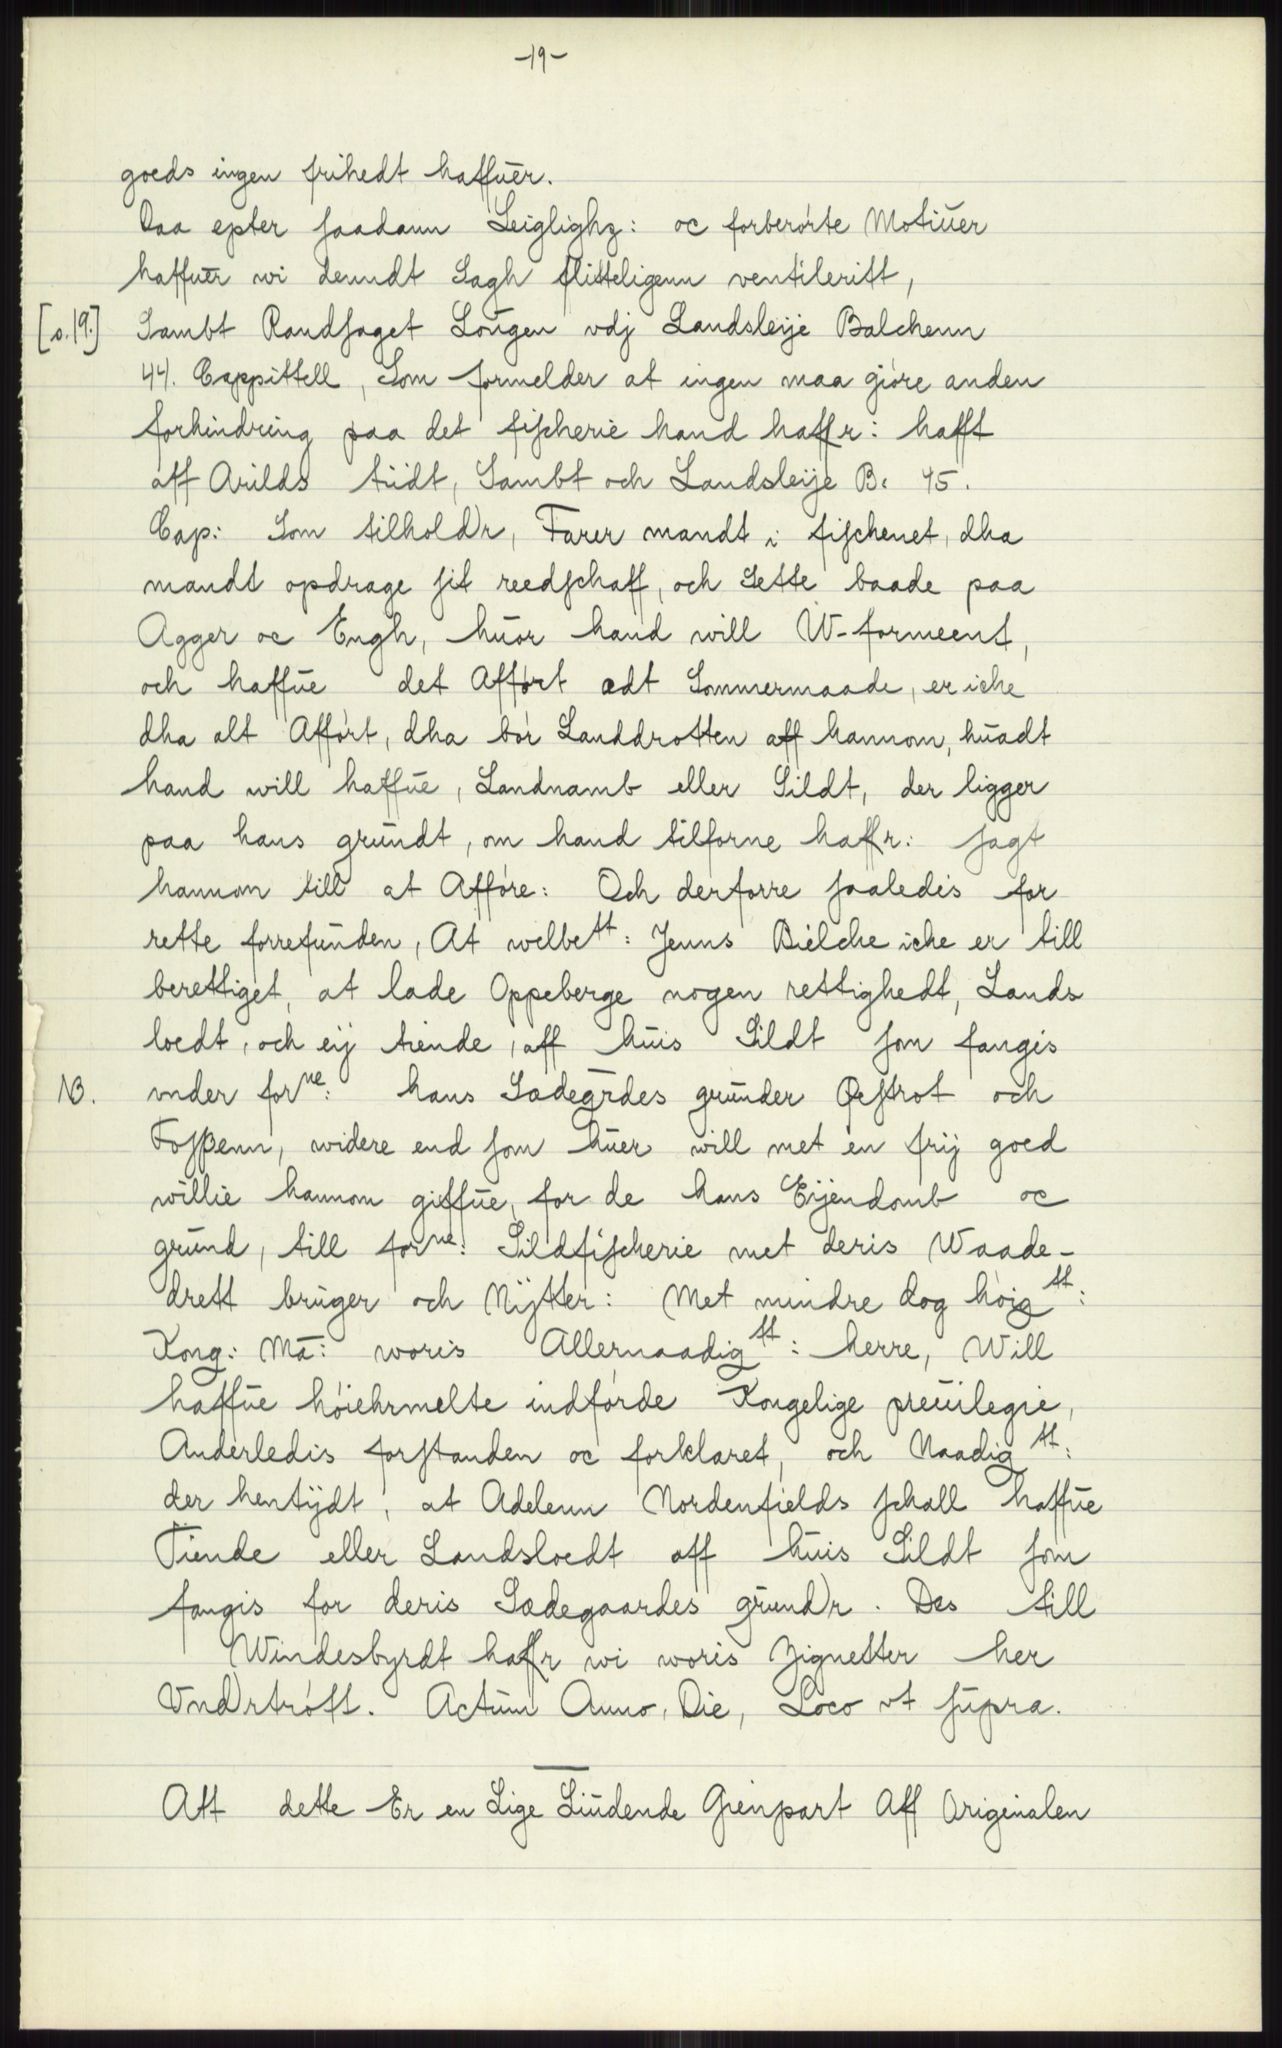 -19-
goeds ingen frihedt haffuer.
Daa epter saadann Leiglighz: oc forberørte Motiuer
haffuer wi denndt Sagh flitteligenn ventileritt,
[s. 19.] Sambt Randsaget Lougen vdj Landsleije Balchenn
44. Cappittell, Som formelder at ingen maa giøre anden
forhindring paa det fischerie hand haffr: hafft
aff Arilds tiidt, Sambt och Landsleije B: 45.
Cap: Som tilholdr, Farer mandt i fischenet, dha
mandt opdrage sit reedschaff, och Sette baade paa
Agger oc Engh, huor hand will W-formeent,
och haffue det Afført edt Sommermaade, er iche
dha alt Afført, dha bør Landdrotten aff hannom, huadt
hand will haffue, Landnamb eller Sildt, der ligger
paa hans grundt, om hand tilforne haffr: sagt
hannom till at Afføre: Och derforre saaledis for
rette forrefunden, At welbe tt: Jenns Bielche iche er till
berettiget, at lade Oppeberge nogen rettighedt, Lands
loedt, och eij tiende, aff huis Sildt som fangis
NB. vnder for ne: hans Sædegårdes grunder Øestrot och
Fosßenn, widere end som huer will met en frij goed
willie hannom giffue, for de hans Eijendomb oc
grund, till for ne: Sildfischerie met deris Waade-
drett bruger och Nijtter: Met mindre dog høig tt:
Kong: Ma: woris Allernaadig tt: herre, Will
haffue høiehrmelte indførde Kongelige preuilegie,
Anderledis forstanden oc forklaret, och Naadig tt:
der hentijdt, at Adelenn Nordenfields schall haffue
Tiende eller Landsloedt aff huis Sildt som
fangis for deris Sædegaardes grundr. Des till
Windesbyrdt haffr wi woris Zignetter her
Vndrtrøft. Actum Anno, Die, Loco vt supra.
Att dette Er en Lige Liudende Gienpart Aff Originalen